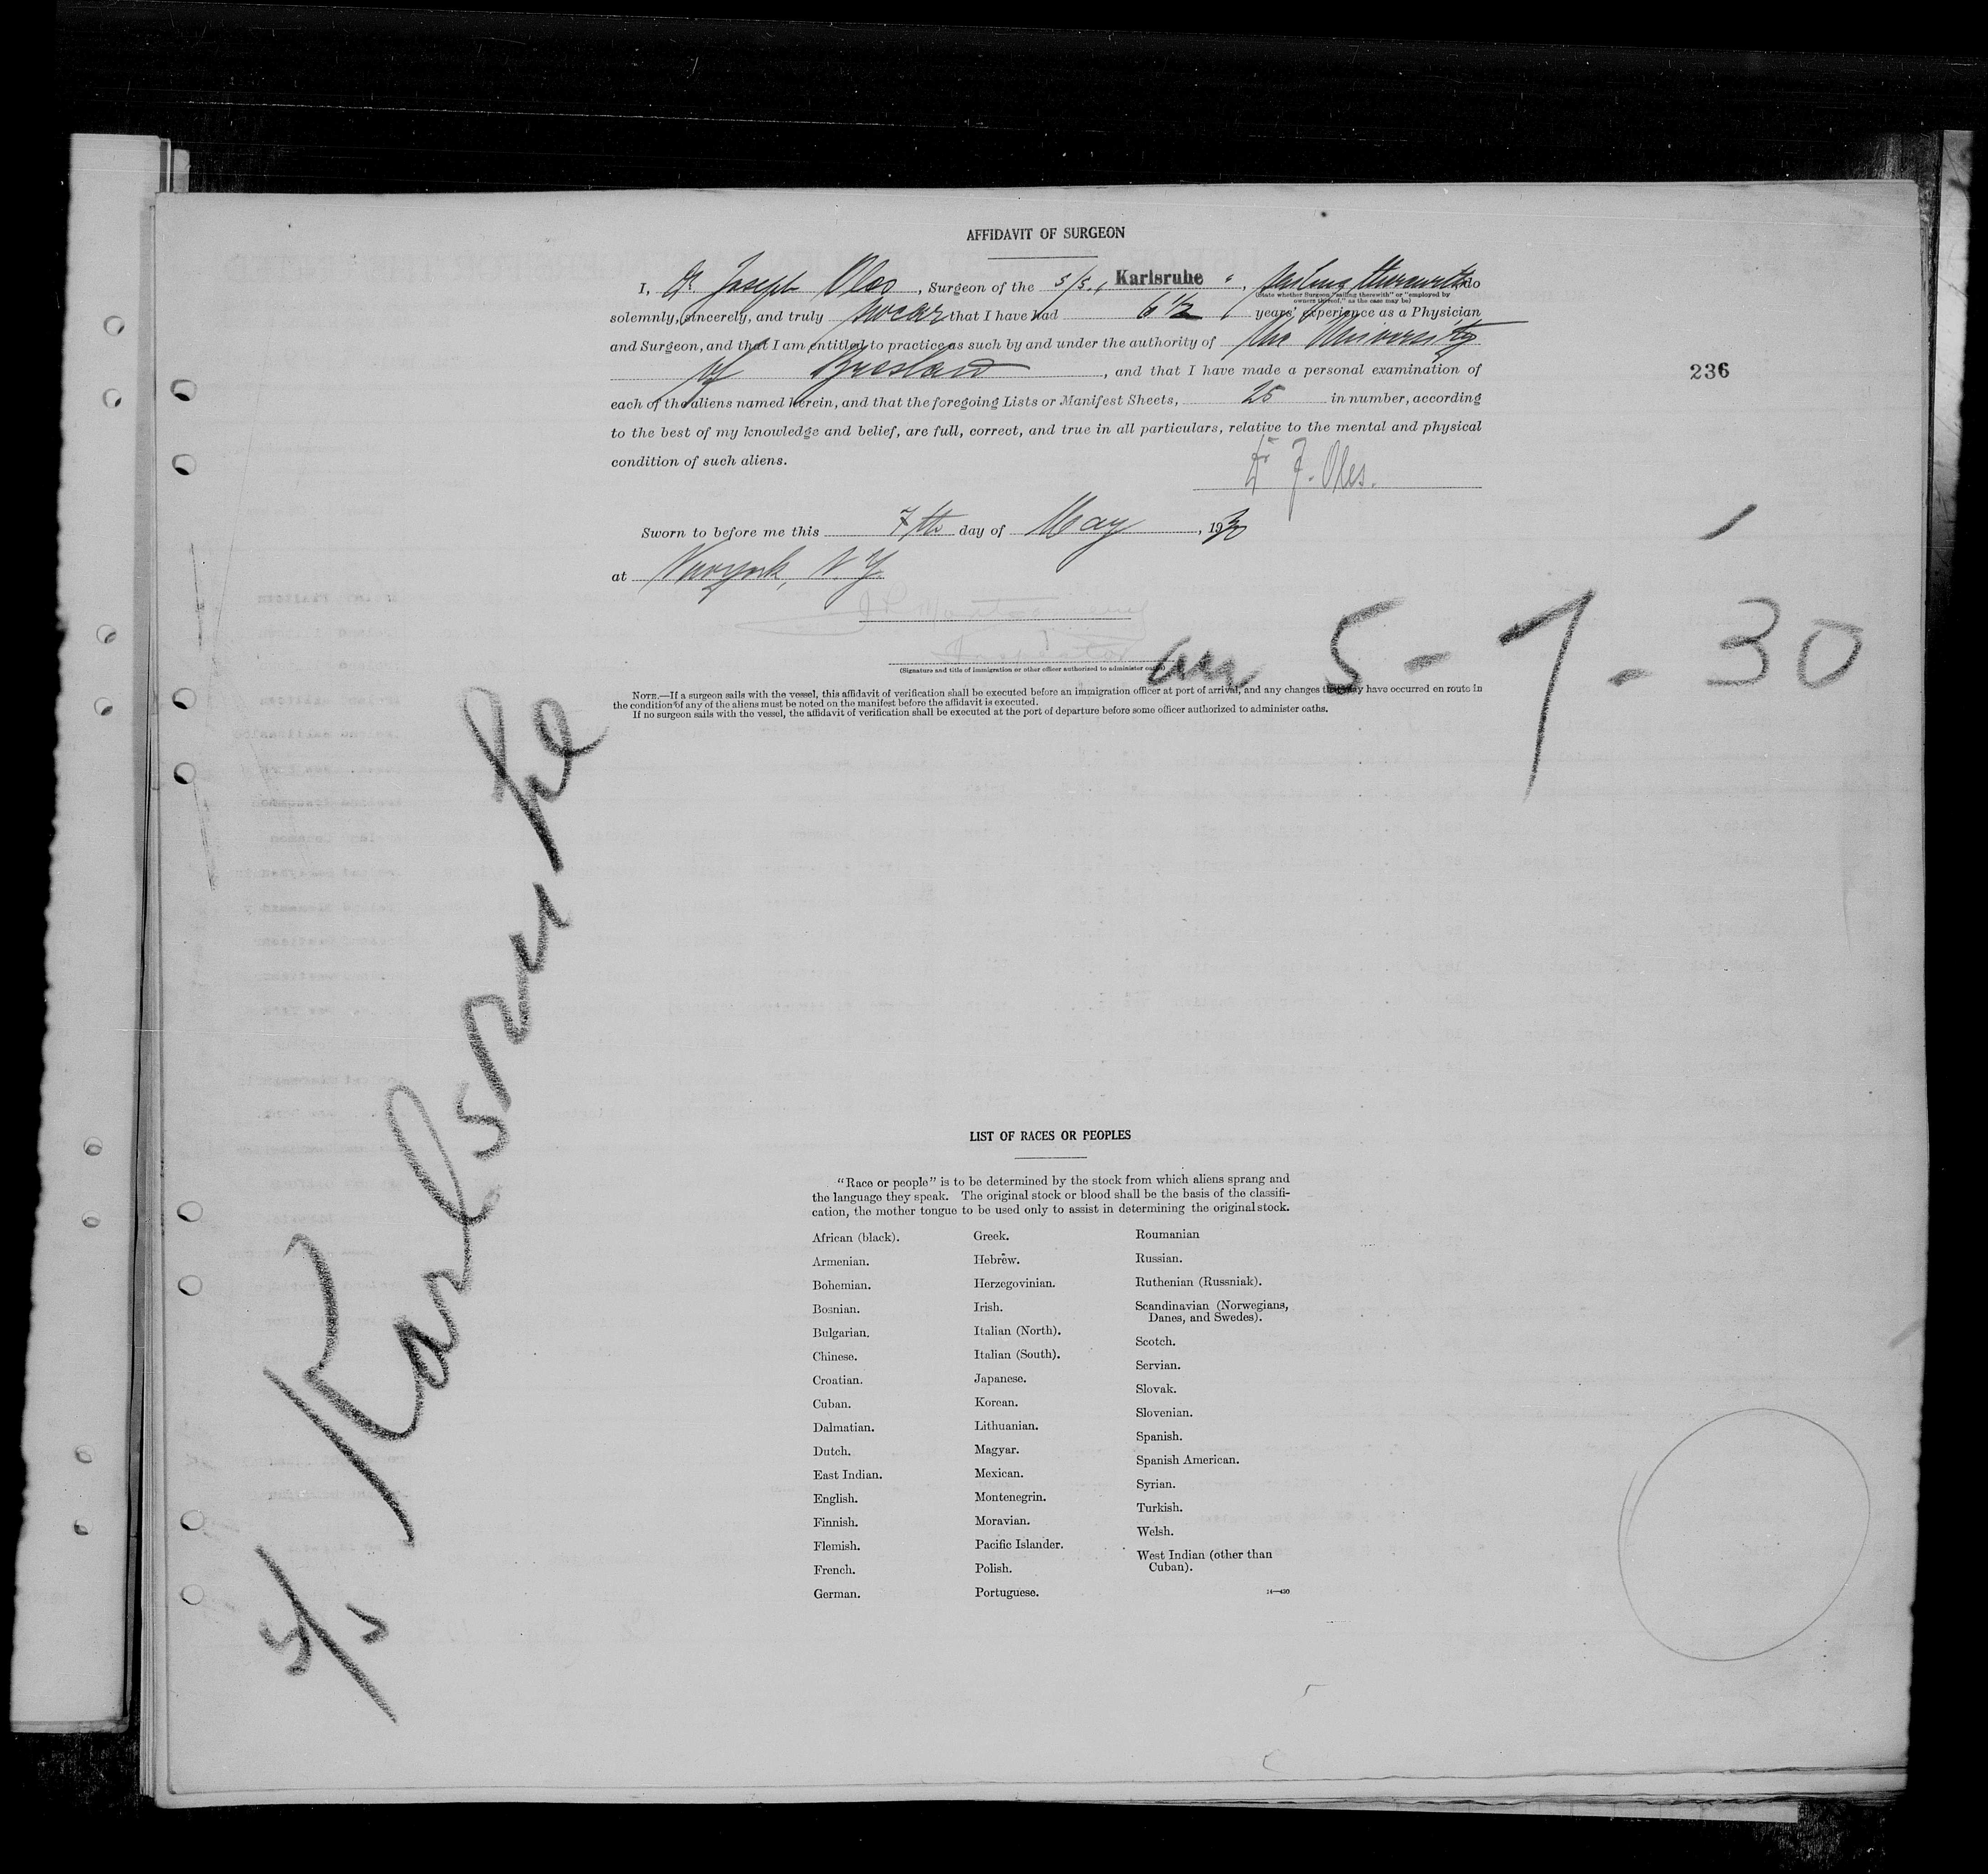 AFFIDAVIT OF SURGEON
I, Dr Joseph Oles, Surgeon of the s/s. „Karlsruhe“, sailing therewith do
(State whether Surgeon "sailing therewith" or "employed by
owners thereof," as the case may be)
solemnly, sincerely, and truly swear that I have had 6 1/2 years' experience as a Physician
and Surgeon, and that I am entitled to practice as such by and under the authority of the University
of Breslau, and that I have made a personal examination of
236
each of the aliens named herein, and that the foregoing Lists or Manifest Sheets, 25 in number, according
to the best of my knowledge and belief, are full, correct, and true in all particulars, relative to the mental and physical
condition of such aliens.
Dr J. Oles.
Sworn to before me this 7th day of May, 1930
at New York, N.Y.
Inspector
(Signature and title of immigration or other officer authorized to administer oaths)
5-7-30
NOTE.—If a surgeon sails with the vessel, this affidavit of verification shall be executed before an immigration officer at port of arrival, and any changes that may have occurred en route in
the condition of any of the aliens must be noted on the manifest before the affidavit is executed.
If no surgeon sails with the vessel, the affidavit of verification shall be executed at the port of departure before some officer authorized to administer oaths.
s/s Karlsruhe
LIST OF RACES OR PEOPLES
"Race or people" is to be determined by the stock from which aliens sprang and
the language they speak. The original stock or blood shall be the basis of the classifi-
cation, the mother tongue to be used only to assist in determining the original stock.
African (black).
Armenian.
Bohemian.
Bosnian.
Bulgarian.
Chinese.
Croatian.
Cuban.
Dalmatian.
Dutch.
East Indian.
English.
Finnish.
Flemish.
French.
German.
Greek.
Hebrew.
Herzegovinian.
Irish.
Italian (North).
Italian (South).
Japanese.
Korean.
Lithuanian.
Magyar.
Mexican.
Montenegrin.
Moravian.
Pacific Islander.
Polish.
Portuguese.
Roumanian
Russian.
Ruthenian (Russniak).
Scandinavian (Norwegians,
Danes, and Swedes).
Scotch.
Servian.
Slovak.
Slovenian.
Spanish.
Spanish American.
Syrian.
Turkish.
Welsh.
West Indian (other than
Cuban).
14—430